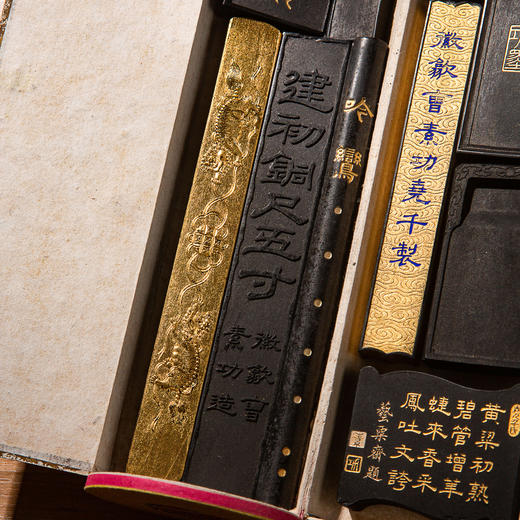 建初銅尺五寸
徽歙曺
素功造
吟鸞
徽歙曺素功堯千製
黃粱初熟
碧管增華
蜨來香采
鳳吐文誇
藝粟齋題